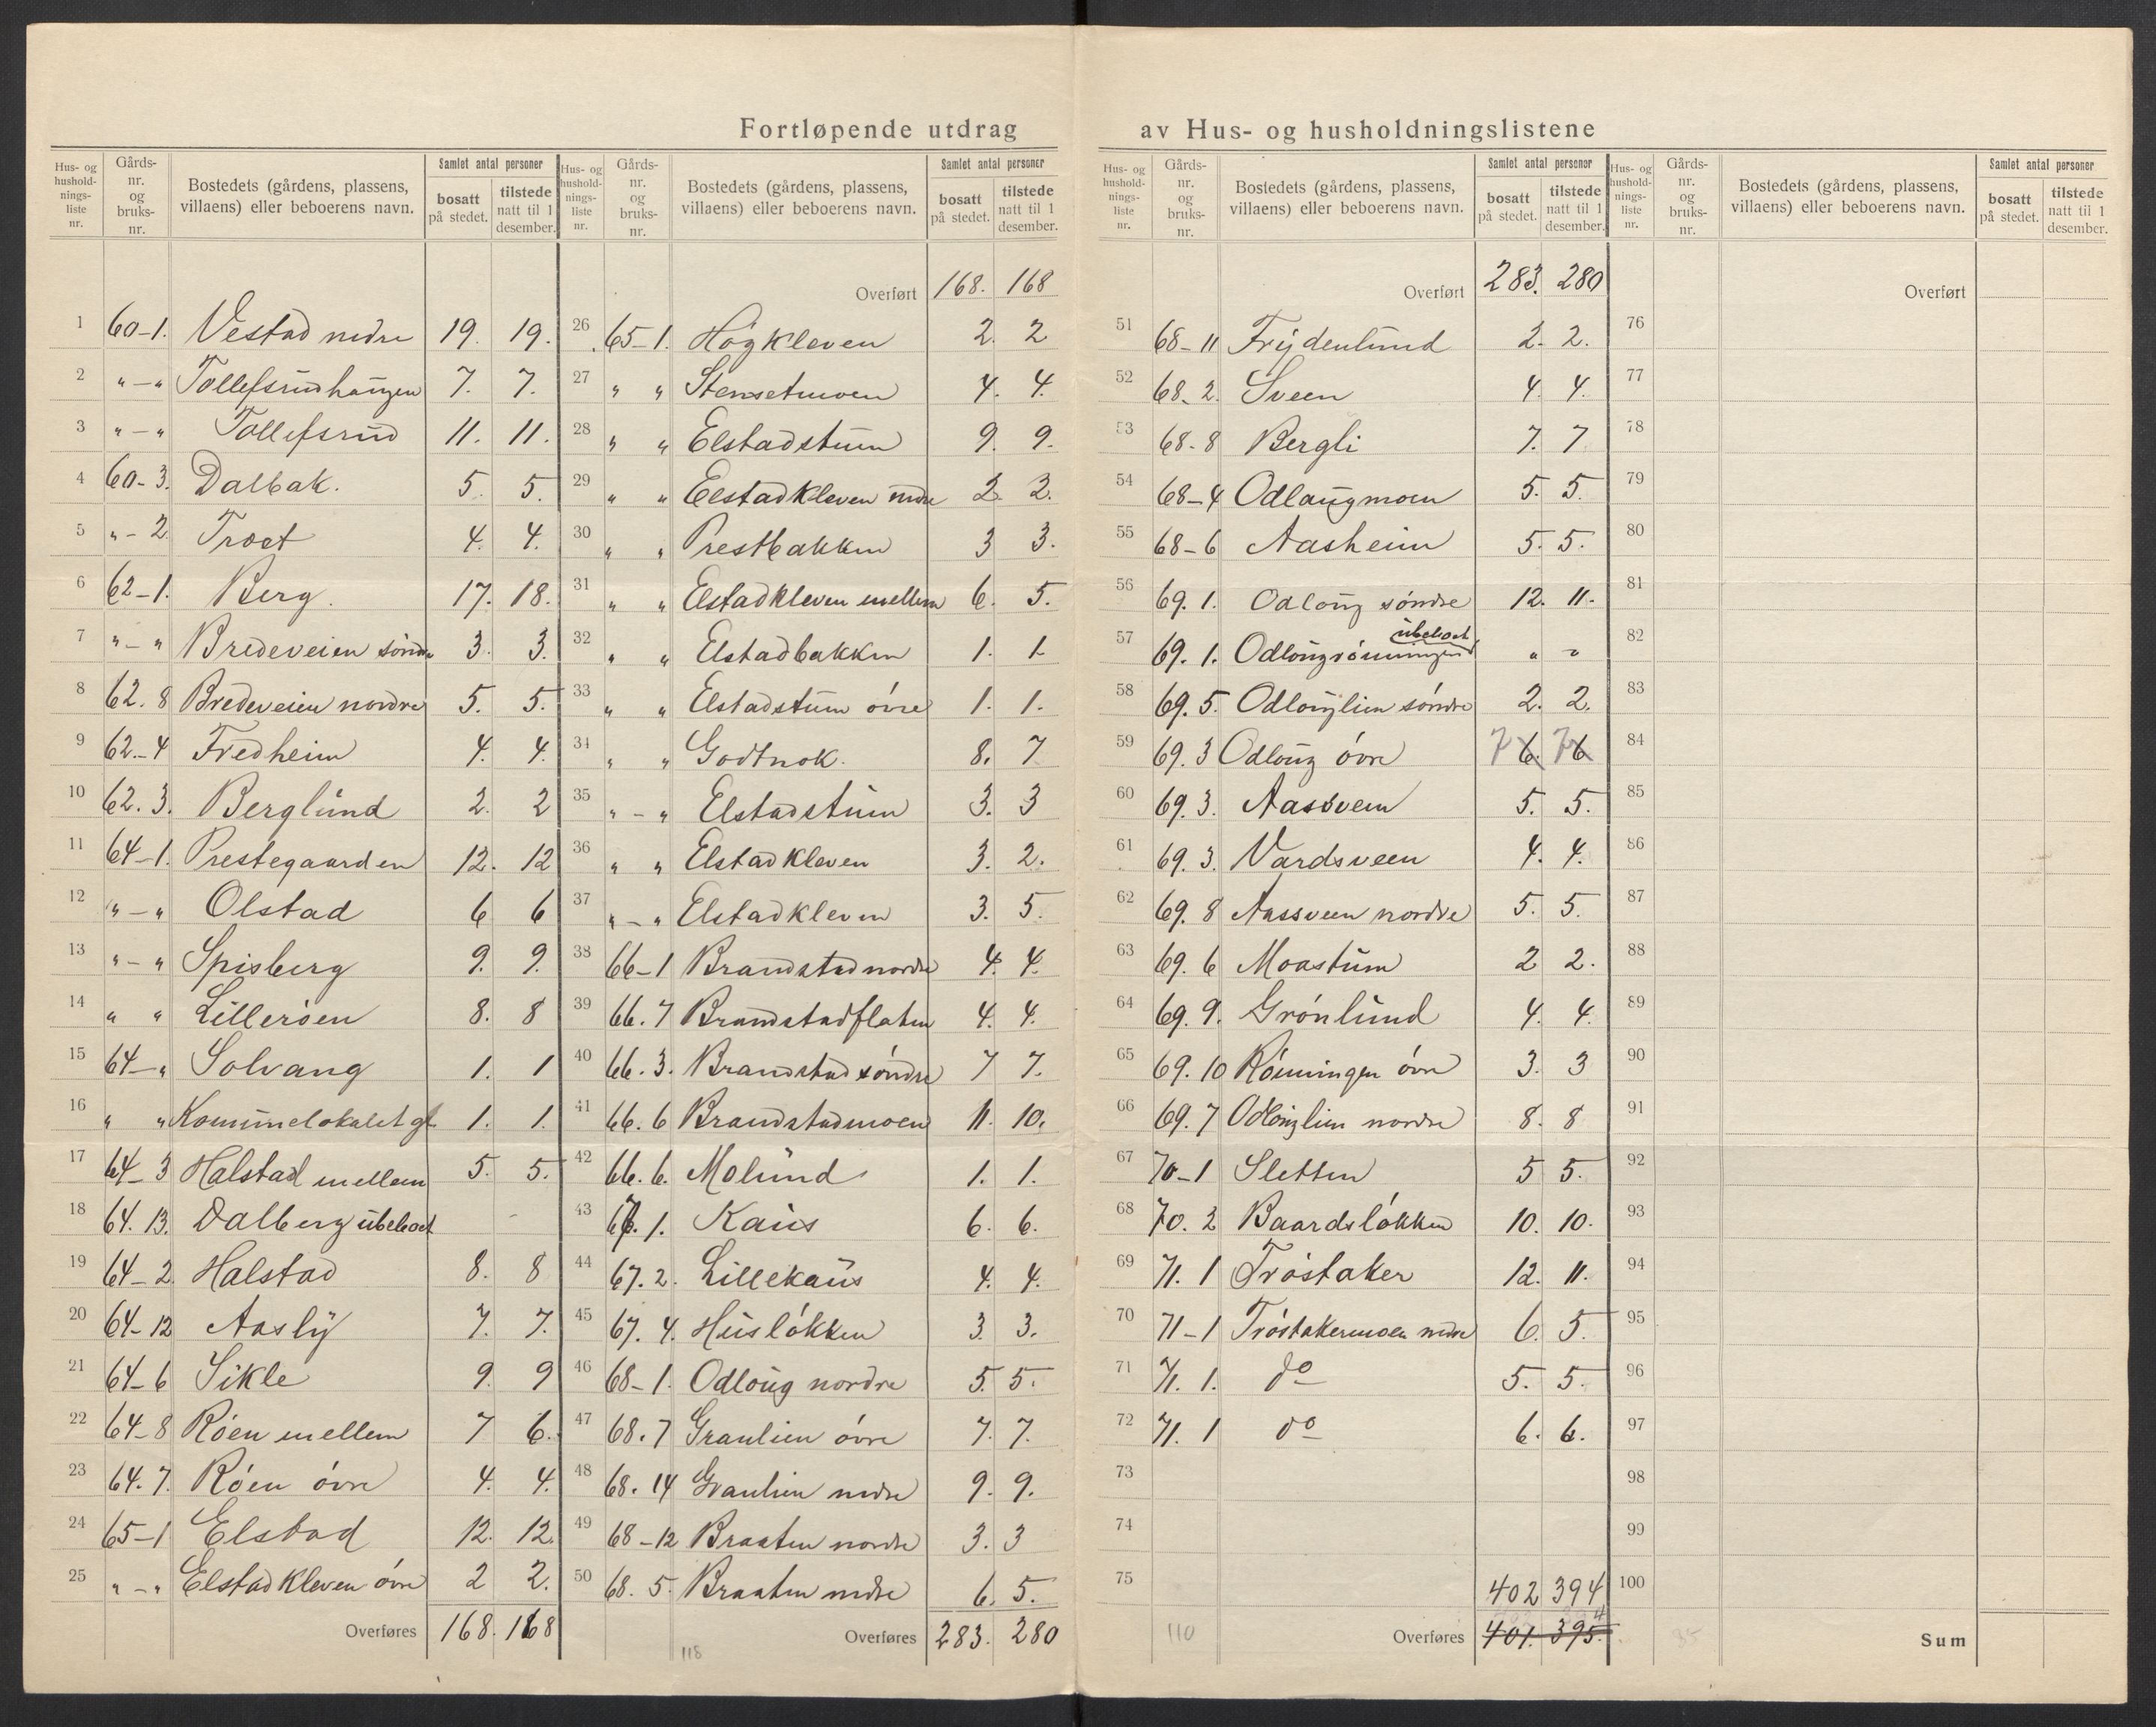 Fortløpende utdrag av Hus- og husholdningslistene
Hus- og hushold- nings- liste nr. | Gårds- nr. og bruks- nr. | Bostedets (gårdens, plassens, villaens) eller beboerens navn. | Samlet antal personer | bosatt på stedet. | tilstede natt til 1 desember.
1 60-1. Vestad nedre 19. 19.
2 " - " Tollefsrudhaugen 7. 7.
3 " - " Tollefsrud 11. 11.
4 60-3. Dalbak. 5. 5.
5 " - 2 Troet 4. 4.
6 62-1. Berg. 17. 18.
7 " - " Bredeveien söndre 3. 3.
8 62.8 Bredeveien nordre 5. 5.
9 62-4 Fredheim 4. 4.
10 62.3. Berglund 2. 2
11 64-1. Prestegaarden 12. 12
12 " - " Olstad 6 6
13 " - " Spisberg 9. 9.
14 " " Lilleröen 8. 8
15 64-" Solvang 1. 1
16 " " Kommunelokalet gl. 1. 1.
17 64-3 Halstad mellem 5. 5.
18 64.13. Dalberg ubeboet -
19 64-2. Halstad 8. 8
20 64-12 Aasly 7. 7.
21 64-6 Sikle 9. 9
22 64-8 Röen mellem 7 6.
23 64.7. Röen övre 4. 4.
24 65-1 Elstad 12. 12.
25 " - " Elstadkleven övre 2 2.
Overføres 168. 168
Overført 168. 168
26 65-1. Högkleven 2. 2
27 " " Stensetmoen 4. 4.
28 " " Elstadstuen 9. 9.
29 " " Elstadkleven nedre 2. 2.
30 " " Prestbakken 3 3.
31 " " Elstadkleven mellem 6. 5.
32 " " Elstadbakken 1. 1.
33 " " Elstadstuen övre 1. 1.
34 " " Godtnok. 8. 7
35 " - " Elstadstuen 3. 3
36 " " Elstadkleven 3. 2.
37 " - " Elstadkleven 3. 5.
38 66-1 Brandstad nordre 4. 4.
39 66.7 Brandstadflaten 4. 4.
40 66.3. Brandstad söndre 7 7.
41 66.6 Brandstadmoen 11. 10.
42 66.6. Molund 1. 1.
43 67.1. Kaus 6. 6.
44 67.2. Lillekaus 4. 4.
45 67.4. Huslökken 3. 3.
46 68-1. Odloug nordre 5. 5.
47 68.7 Graulien övre 7. 7.
48 68.14 Graulien nedre 9. 9.
49 68-12 Braaten nordre 3. 3
50 68.5. Braaten nedre 6. 5.
118 Overføres 283. 280
Overført 283. 280
51 68-11 Frydenlund 2. 2.
52 68.2. Sveen 4. 4.
53 68-8 Bergli 7. 7
54 68-4 Odlaugmoen 5. 5.
55 68-6 Aasheim 5. 5.
56 69.1. Odloug söndre 12. 11.
57 69.1. Odlougrönningen ubeboet " "
58 69.5. Odlouglien söndre 2. 2.
59 69.3 Odloug övre 7 6. 7 6
60 69.3. Aassveen 5. 5.
61 69.3. Vardsveen 4. 4.
62 69.8 Aassveen nordre 5. 5.
63 69.6 Moastuen 2 2.
64 69.9. Grönlund 4. 4.
65 69.10 Rönningen övre 3. 3
66 69.7 Odlouglien nordre 8. 8
67 70-1 Sletten 5 5.
68 70.2 Baardslökken 10. 10.
69 71.1 Tröstaker 12. 11.
70 71-1 Tröstakermoen nedre 6. 5.
71 71.1. do 5. 5.
72 71.1 do 6. 6.
73
74
75 402 394
110 Overføres 401. 395. 4
Overført
76
77
78
79
80
81
82
83
84
85
86
87
88
89
90
91
92
93
94
95
96
97
98
99
100
Sum